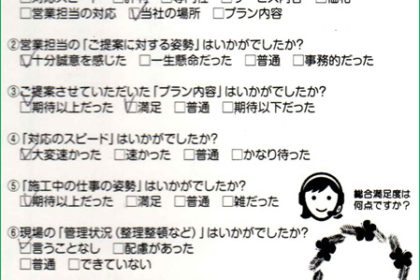 □営業担当の対応 ☑当社の場所 □プラン内容
②営業担当の「ご提案に対する姿勢」はいかがでしたか?
☑十分誠意を感じた □一生懸命だった □普通 □事務的だった
③ご提案させていただいた「プラン内容」はいかがでしたか?
☑期待以上だった ☑満足 □普通 □期待以下だった
④「対応のスピード」はいかがでしたか?
☑大変速かった □速かった □普通 □かなり待った
⑤「施工中の仕事の姿勢」はいかがでしたか?
☑期待以上だった □満足 □普通 □雑だった
総合満足度は
何点ですか?
⑥現場の「管理状況(整理整頓など)」はいかがでしたか?
☑言うことなし □配慮があった
□普通 □できていない